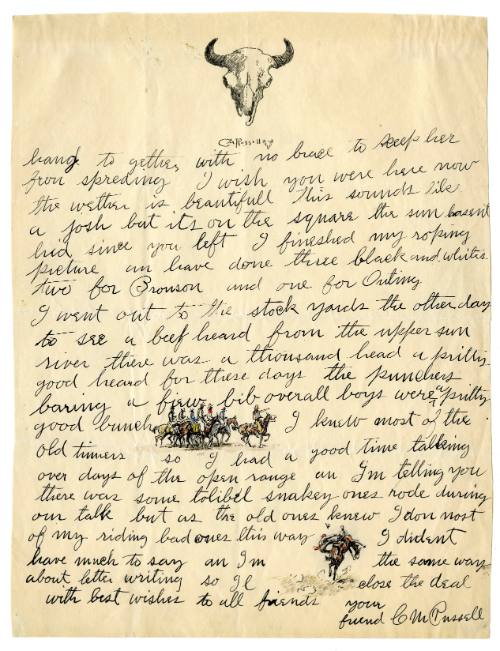 C M Russell
hang to gether with no brace to keep her
from spreding I wish you were here now
the wether is beautifull This sounds like
a josh but its on the square the sun hasent
hid since you left I fineshed my roping
picture an have done three black and whites
two for Bronson and one for Outing
I went out to the stock yards the other day
to see a beef heard from the upper sun
river there was a thousand head a pritty
good heard for these days the punchers
baring a fiew bib overall boys were a pritty
good bunch I knew most of the
old timers so I had a good time talking
over days of the open range an Im telling you
there was some tolibil snakey ones rode during
our talk but as the old ones knew I don most
of my riding bad ones this way I dident
have much to say an Im the same way
about letter writing so Il close the deal
with best wishes to all friends your
friend C M Russell